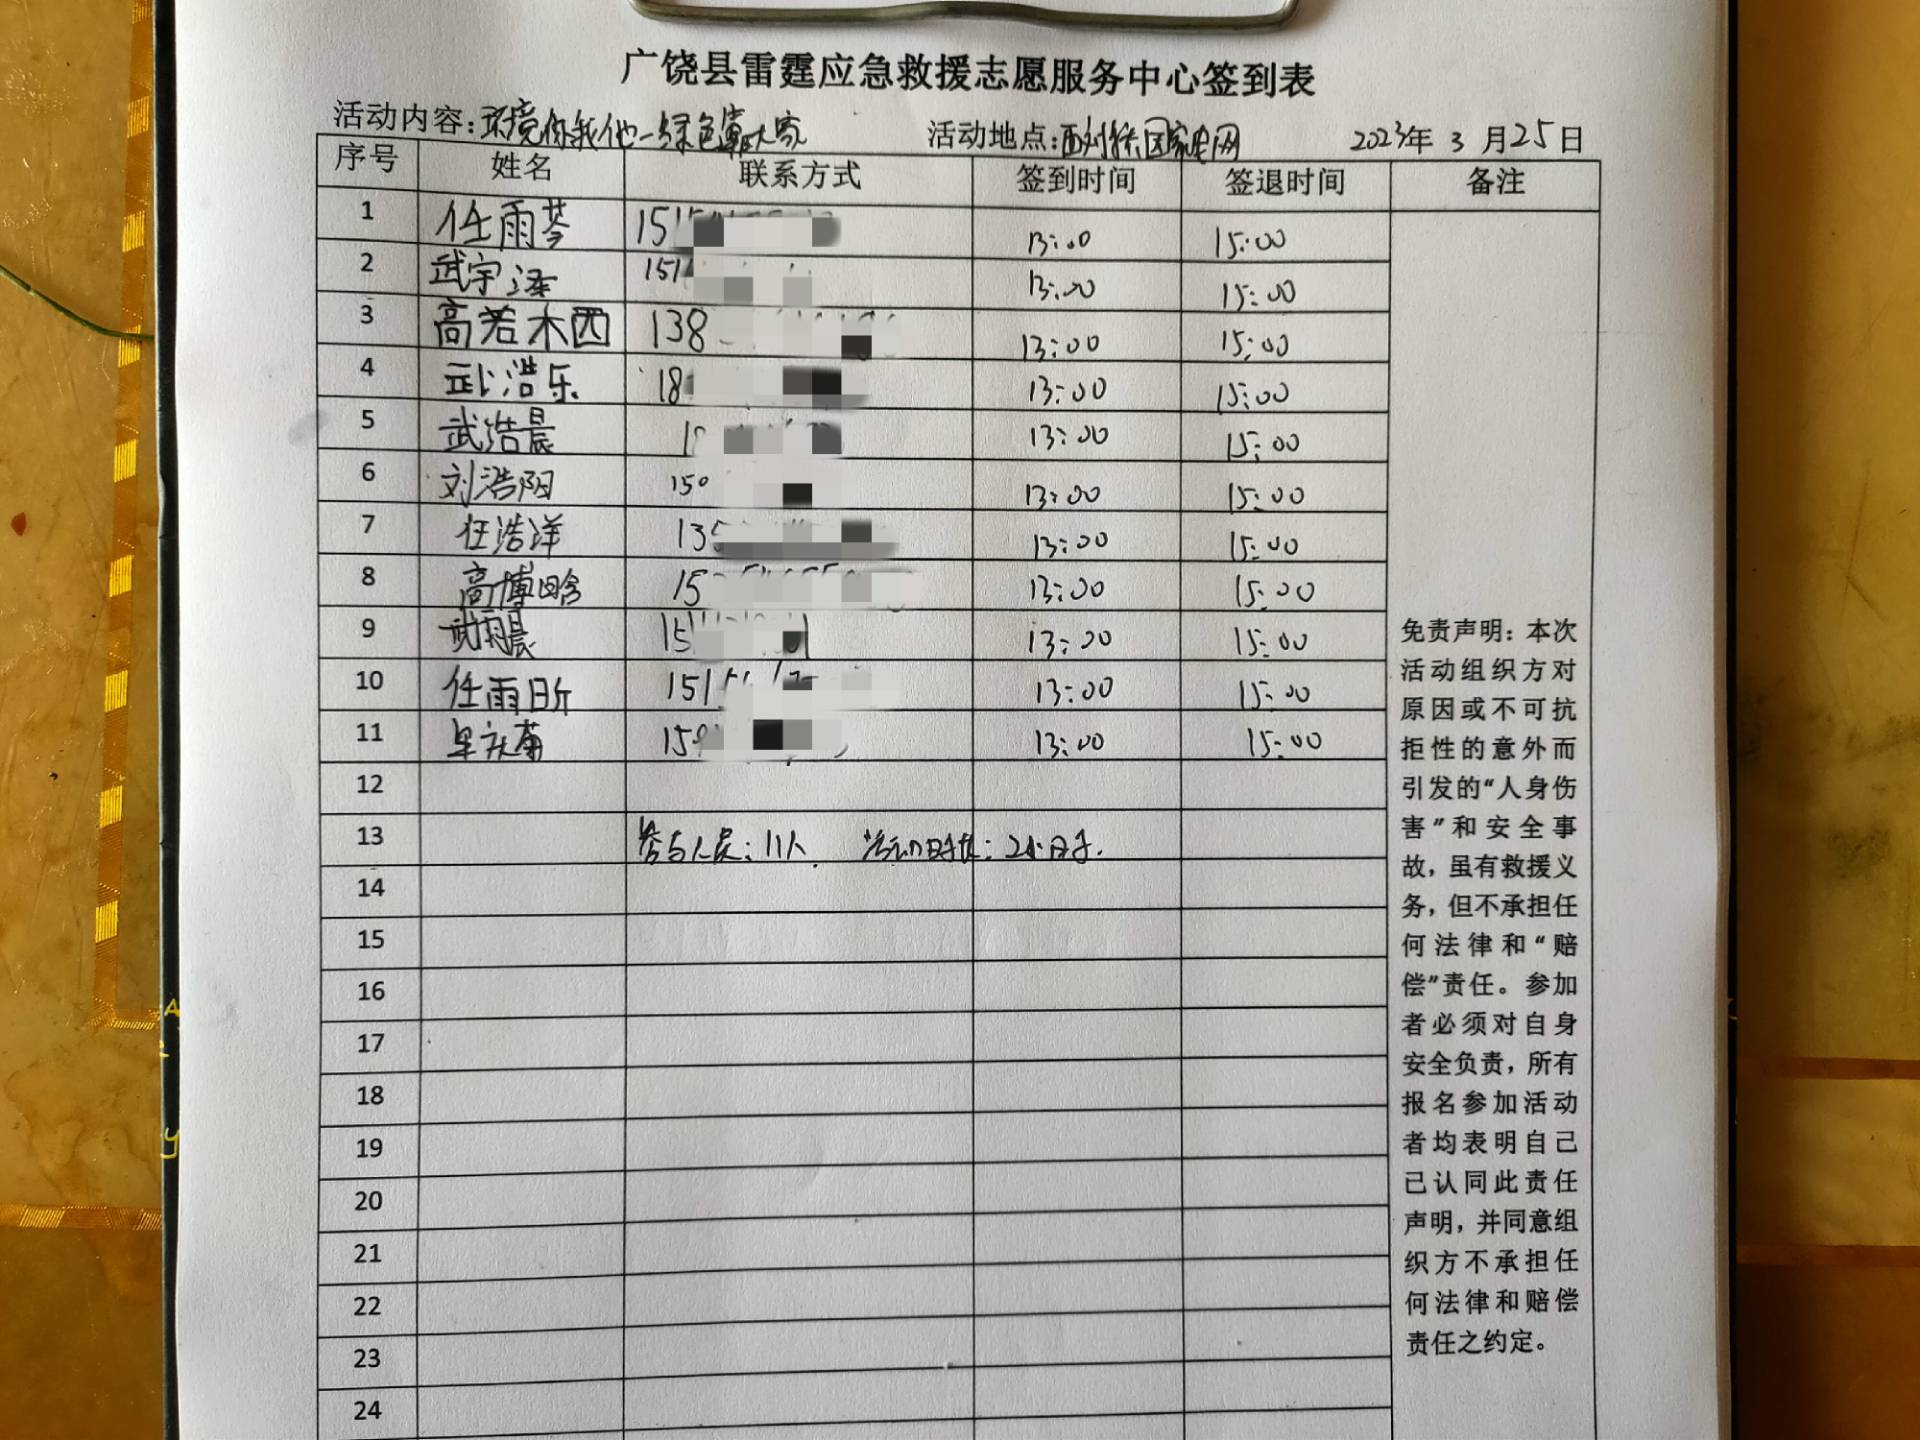 广饶县雷霆应急救援志愿服务中心签到表
活动内容:环境你我他一绿色靠大家 活动地点:国家电网 2023年 3 月25日
序号 姓名 联系方式 签到时间 签退时间 备注
1 任雨芩 151 13:00 15:00
2 武宇泽 151 13:00 15:00
3 高若木西 138 13:00 15:00
4 武浩乐 18 13:00 15:00
5 武浩晨 1 13:00 15:00
6 刘浩阳 150 13:00 15:00
7 任浩洋 135 13:00 15:00
8 高博晗 15 13:00 15:00
9 武雨晨 15 13:00 15:00
10 任雨昕 151 13:00 15:00
11 15 13:00 15:00
12
13 参与人员:11人. 活动时长:2小时.
14
15
16
17
18
19
20
21
22
23
24
免责声明:本次
活动组织方对
原因或不可抗
拒性的意外而
引发的“人身伤
害”和安全事
故,虽有救援义
务,但不承担任
何法律和“赔
偿”责任。参加
者必须对自身
安全负责,所有
报名参加活动
者均表明自己
已认同此责任
声明,并同意组
织方不承担任
何法律和赔偿
责任之约定。